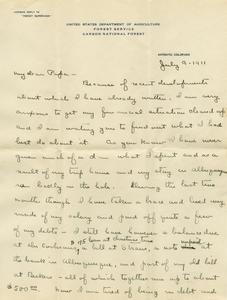 ADDRESS REPLY TO
"FOREST SUPERVISOR"
UNITED STATES DEPARTMENT OF AGRICULTURE
FOREST SERVICE
CARSON NATIONAL FOREST
ANTONITO, COLORADO
July 9 - 1911
My dear Papa -
Because of recent developments
about which I have already written, I am very
anxious to get my financial situation cleared up
and I am writing you to find out what I had
best do about it. As you know I have never
given much of a d - what I spent and as a
result of my trip home and my stay in Albuquerque
was badly in the hole. During the last two
months though I have taken a brace and lived very
of my salary and paid off quite a few
of my debts - I still owe however a balance due
at the a bill at a note unpaid
$175 loan at Christmas time
at the bank in Albuquerque, and part of my old bill
at - all of which together runs up to about
$500.00. Now I am tired of being in debt and